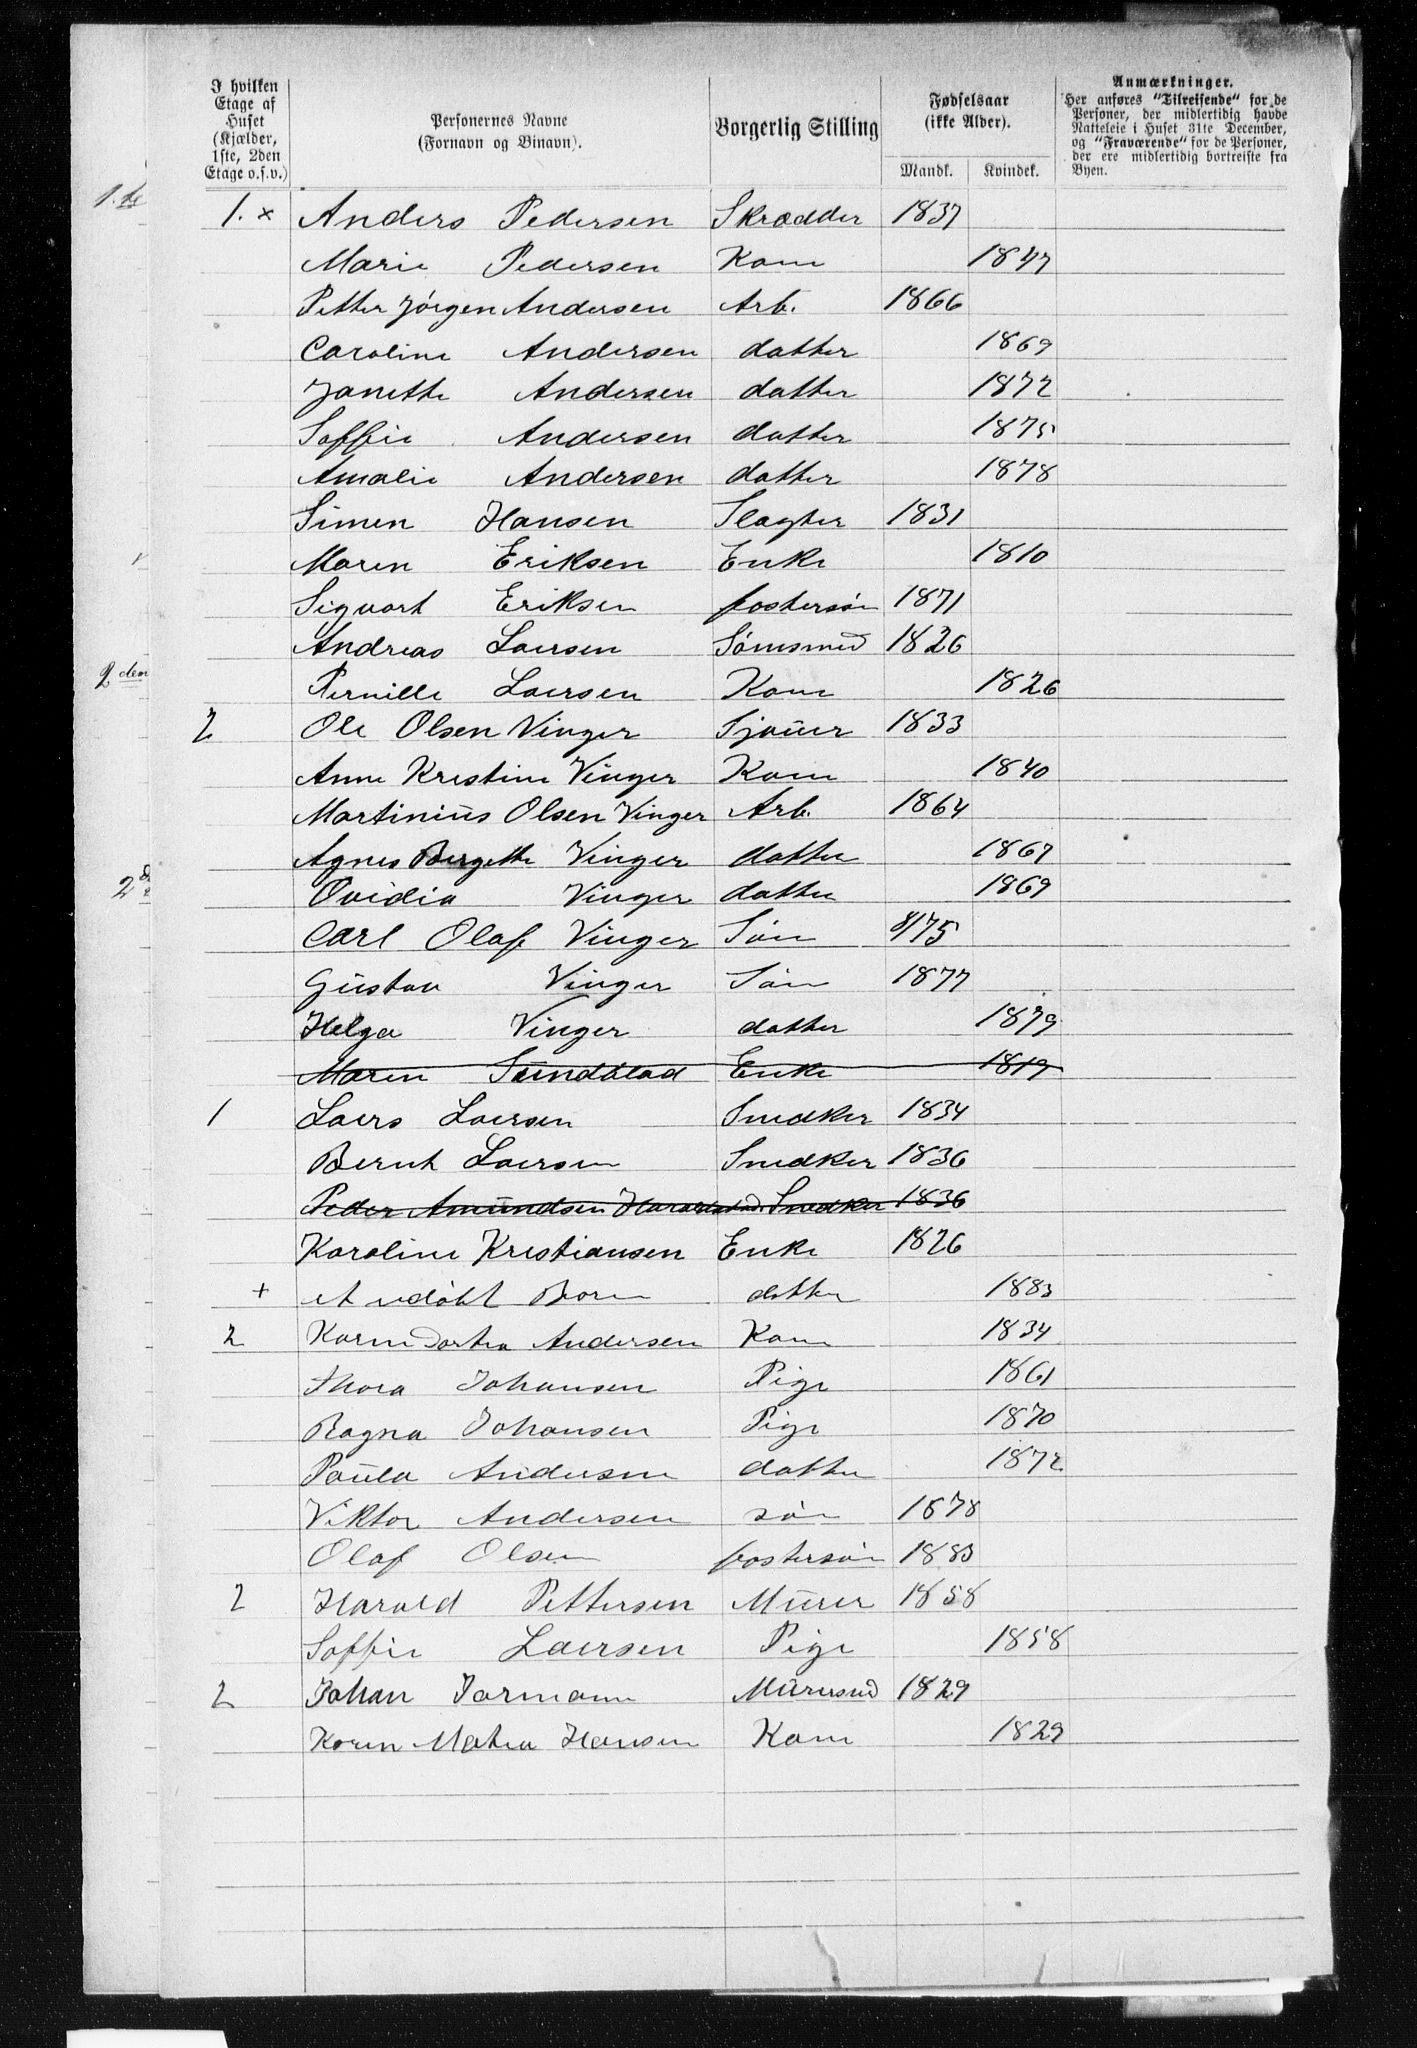 I hvilken
Etage af
Huset
(Kjælder,
1ste, 2den
Etage o.s.v.)
Personernes Navne
(Fornavn og Binavn).
Borgerlig Stilling
Fødselsaar
(ikke Alder).
Mandk. Kvindek.
Anmærkninger.
Her anføres "Tilreisende" for de
Personer, der midlertidig havde
Natteleie i Huset 31te December,
og "Fraværende" for de Personer,
der ere midlertidig bortreiste fra
Byen.
1. × Anders Pedersen Skrædder 1837
Marie Pedersen Kone 1847
Petter Jörgen Andersen Arb. 1866
Caroline Andersen datter 1869
Janette Andersen datter 1872
Soffie Andersen datter 1875
Amalie Andersen datter 1878
Simen Hansen Slagter 1831
Maren Eriksen Enke 1810
Sigvart Eriksen fostersøn 1871
Andreas Larsen Sömsmed 1826
Pernille Larsen Kone 1826
2 Ole Olsen Vinger Sjouer 1833
Anne Kristine Vinger Kone 1840
Martinius Olsen Vinger Arb. 1864
Agnes Bergette Vinger datter 1867
Ovidia Vinger datter 1869
Carl Olaf Vinger Sön 8/75
Gustav Vinger Sön 1877
Helga Vinger datter 1879
Maren Sundblad Enke 1819
1 Lars Larsen Snedker 1834
Bernt Larsen Snedker 1836
Peder Amundsen Snedker 1836
Karoline Kristiansen Enke 1826
+ et udöbt Barn datter 1883
2 Karen Dortea Andersen Kone 1834
Thora Johansen Pige 1861
Ragna Johansen Pige 1870
Paula Andersen datter 1872
Viktor Andersen sön 1878
Olaf Olsen fostersön 1883
2 Harald Pettersen Murer 1858
Soffie Larsen Pige 1858
2 Johan Jormann Murersvd 1829
Karen Matea Hansen Kone 1829
1.te
2den